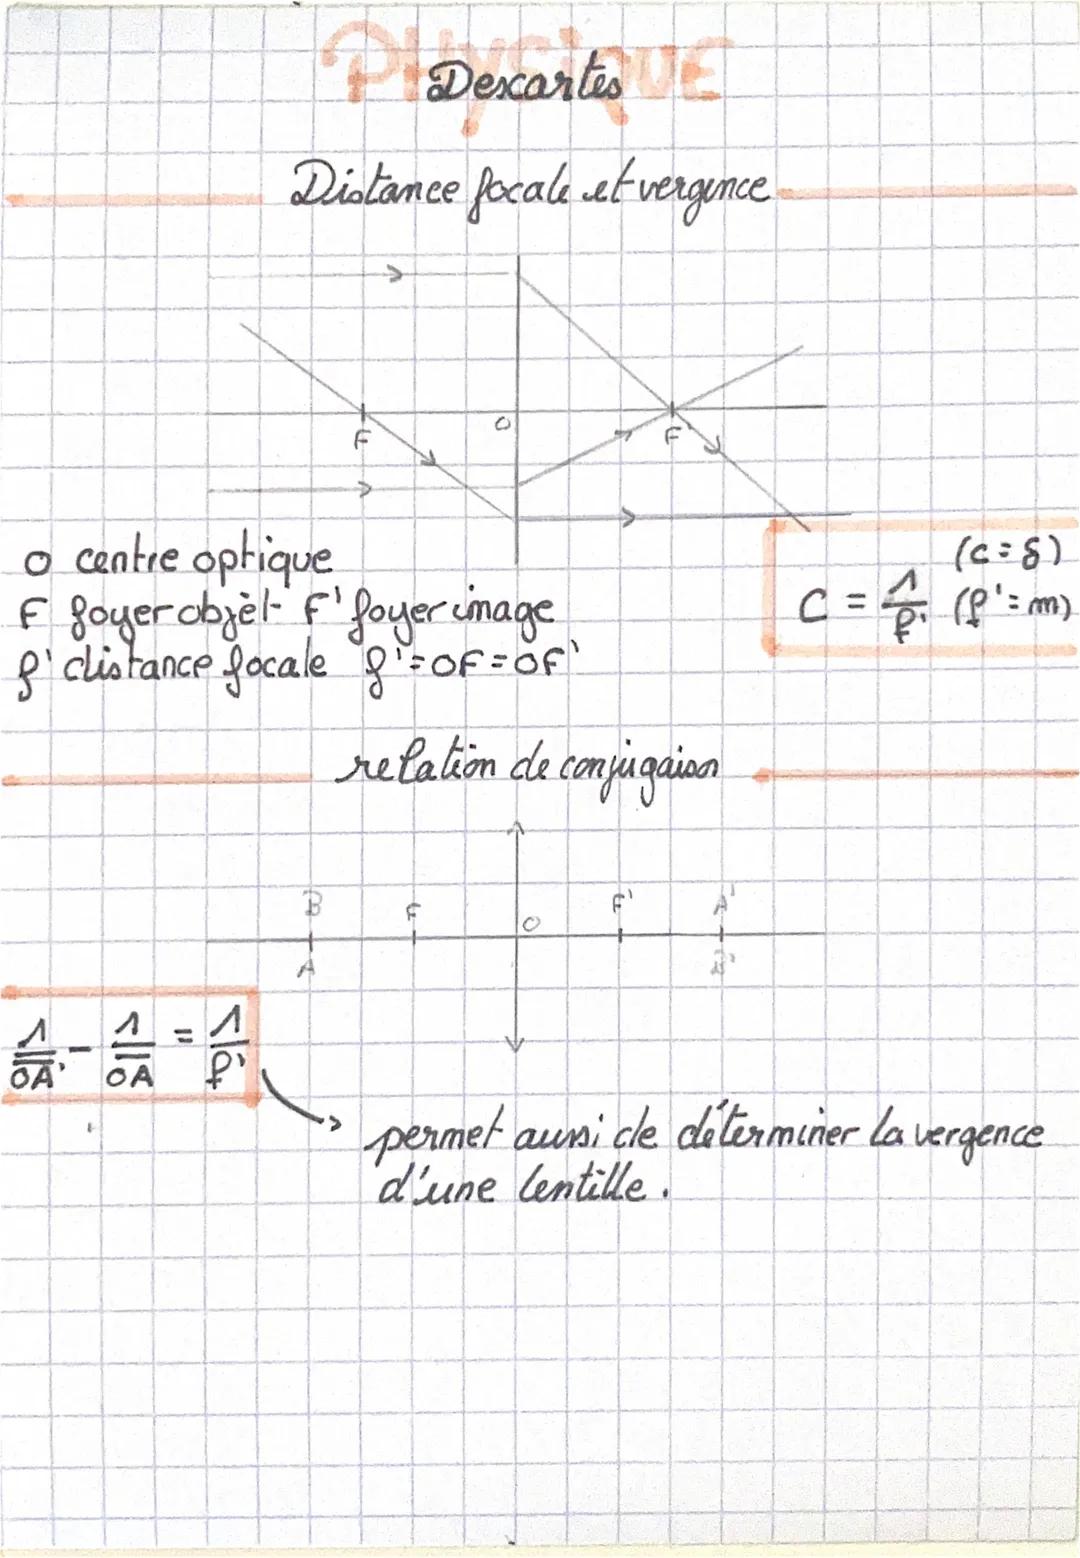 PHYSIQUE
Descartes
Distance focale et vergence
F
O
F'
O centre optique
F foyer objèt F' foyer image
f' distance focale f'=OF=OF'
(c=δ)
C = 1/f' (f'=m)
relation de conjugaison
B F O F' A'
A B'
1/OA' - 1/OA = 1/f'
permet aussi de déterminer la vergence
d'une lentille.